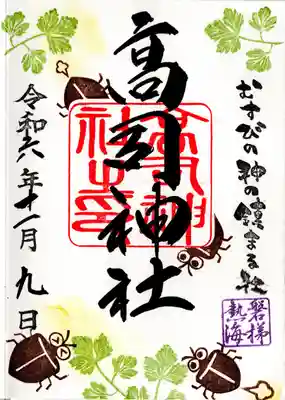 むすびの神の鎮まる社
磐梯
熱海
高司神社
高司神
社之印
令和六年十一月九日